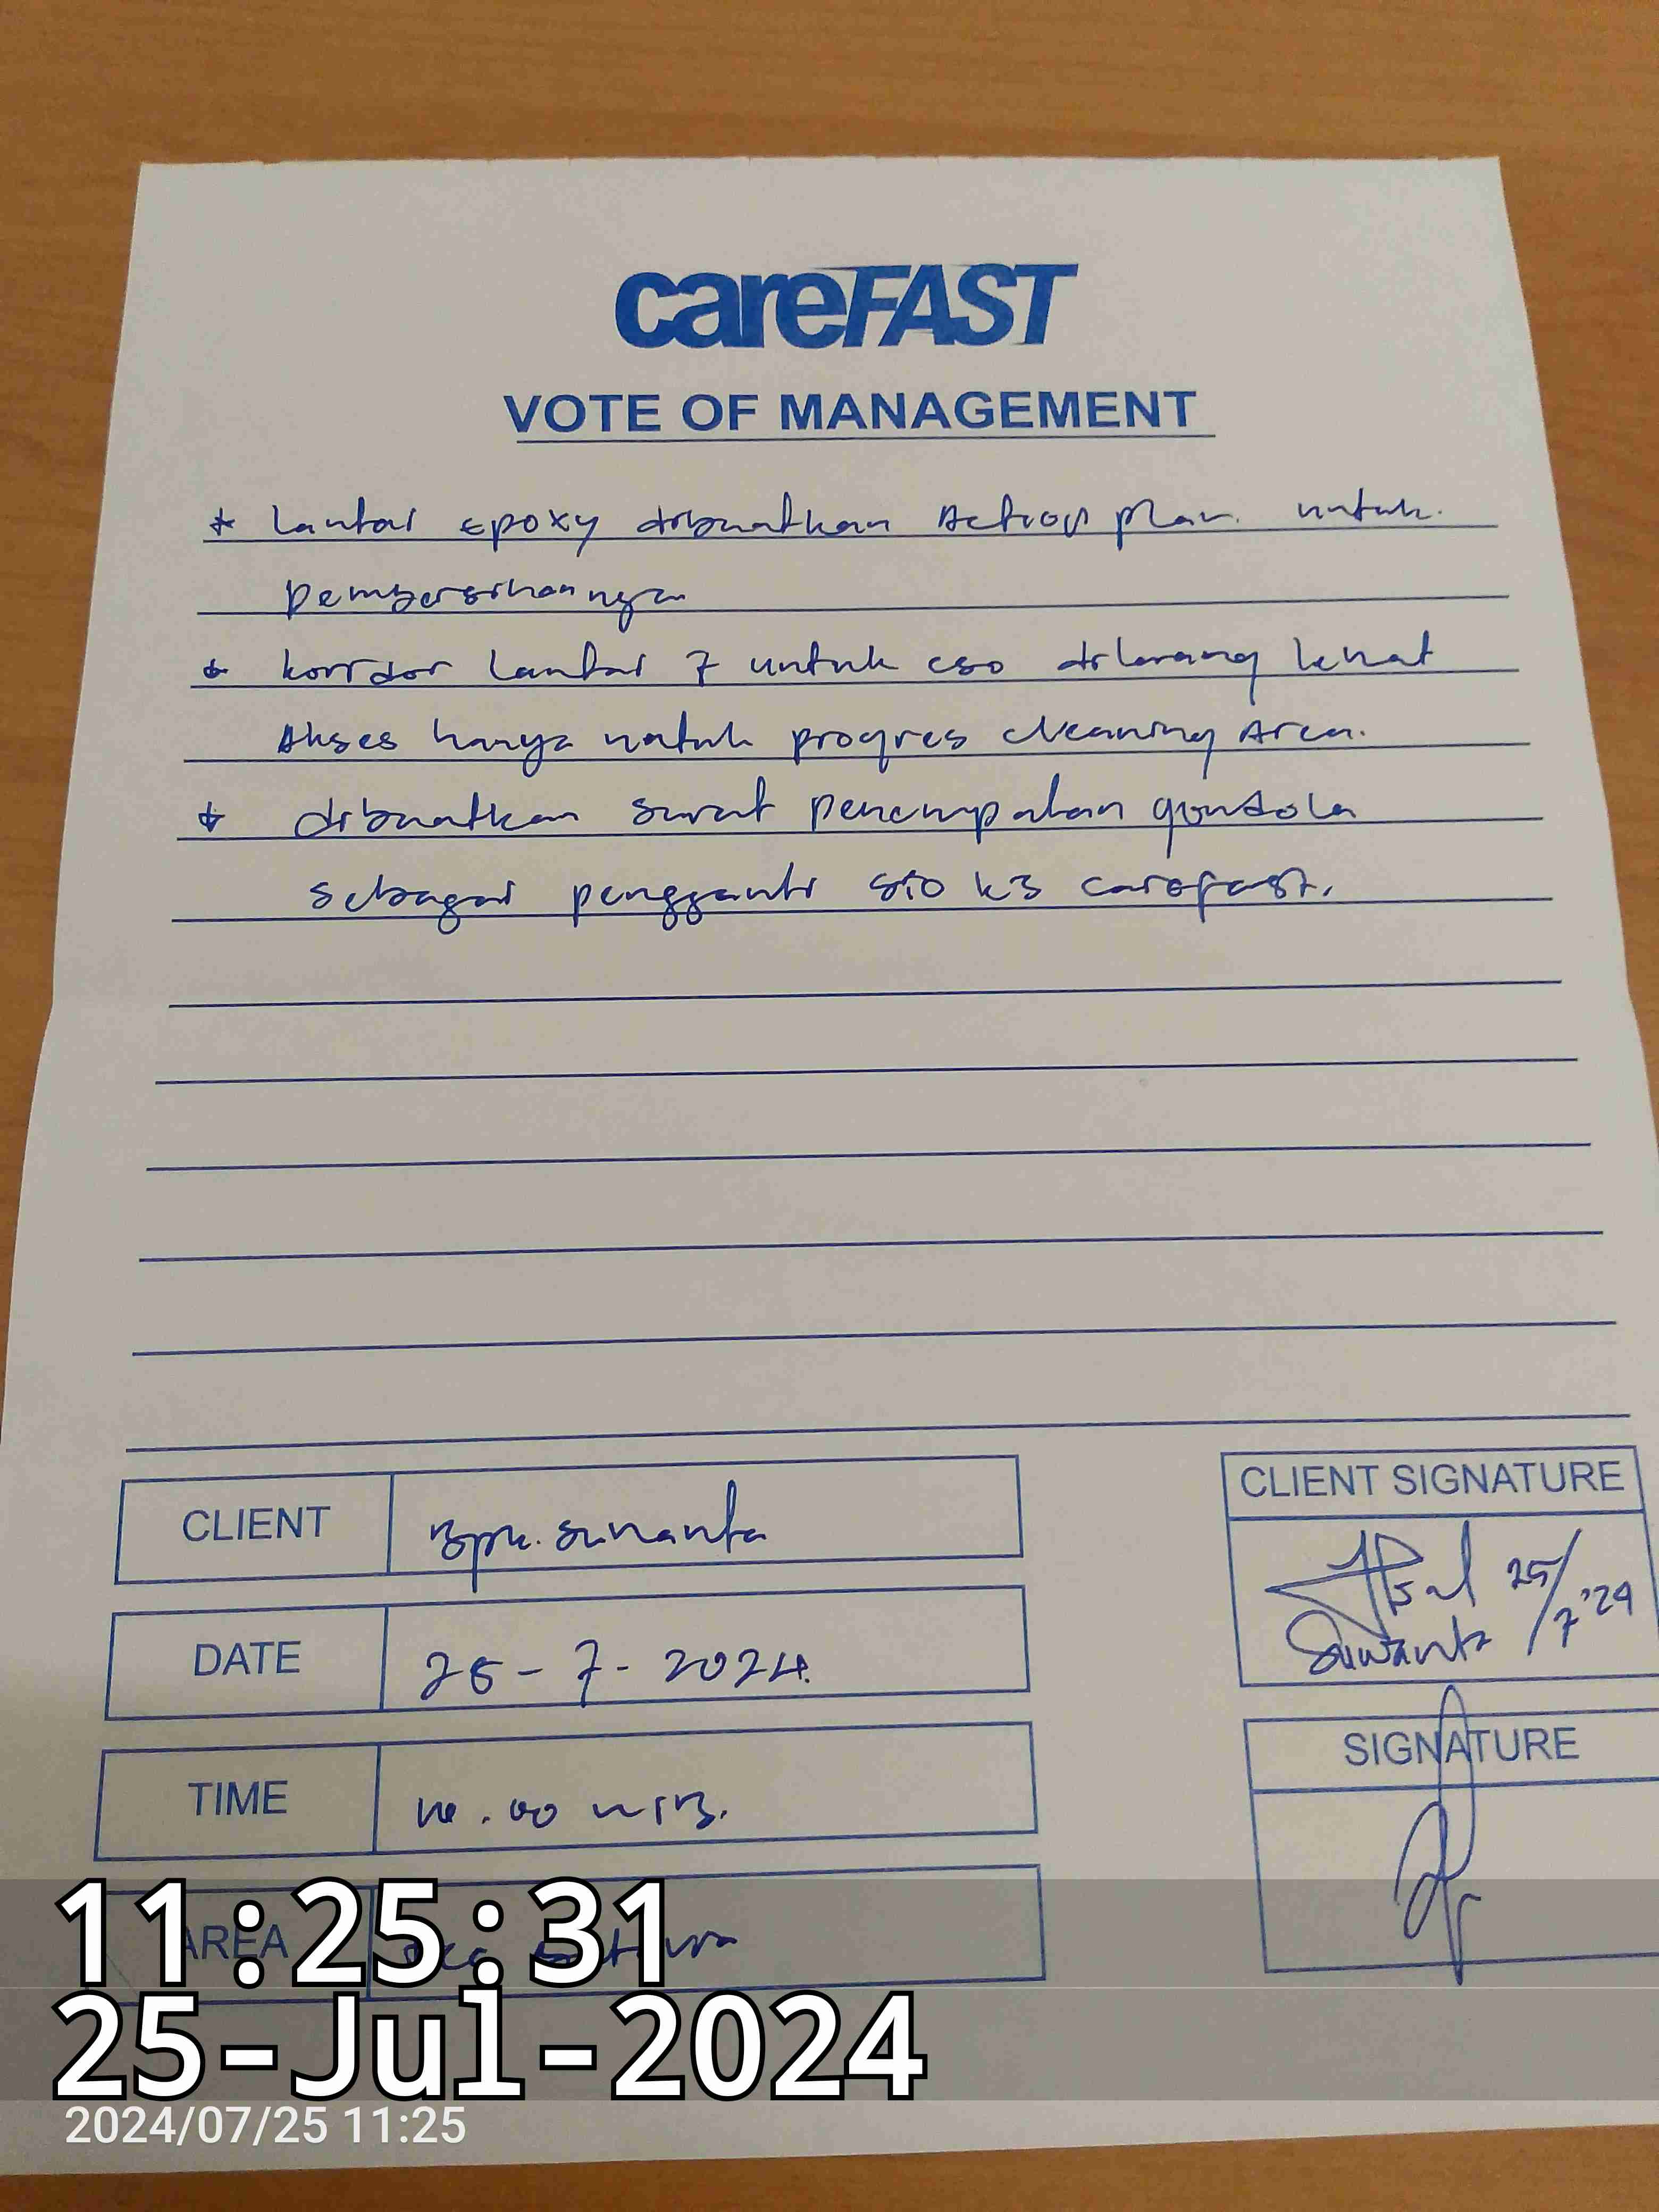 careFAST
VOTE OF MANAGEMENT
* Lantai Epoxy dibuatkan Action plan untuk
pembersihaannya
* korridor lantai 7 untuk cso dilarang lewat
Akses hanya untuk progres cleaning Area.
* dibuatkan surat penempatan gondola
sebagai pengganti sio k3 carefast.
CLIENT
Bpk. Suwanta
CLIENT SIGNATURE
25/7 '24
Suwanta
DATE
25-7-2024.
TIME
10.00 WIB.
SIGNATURE
AREA
11:25:31
25-Jul-2024
2024/07/25 11:25